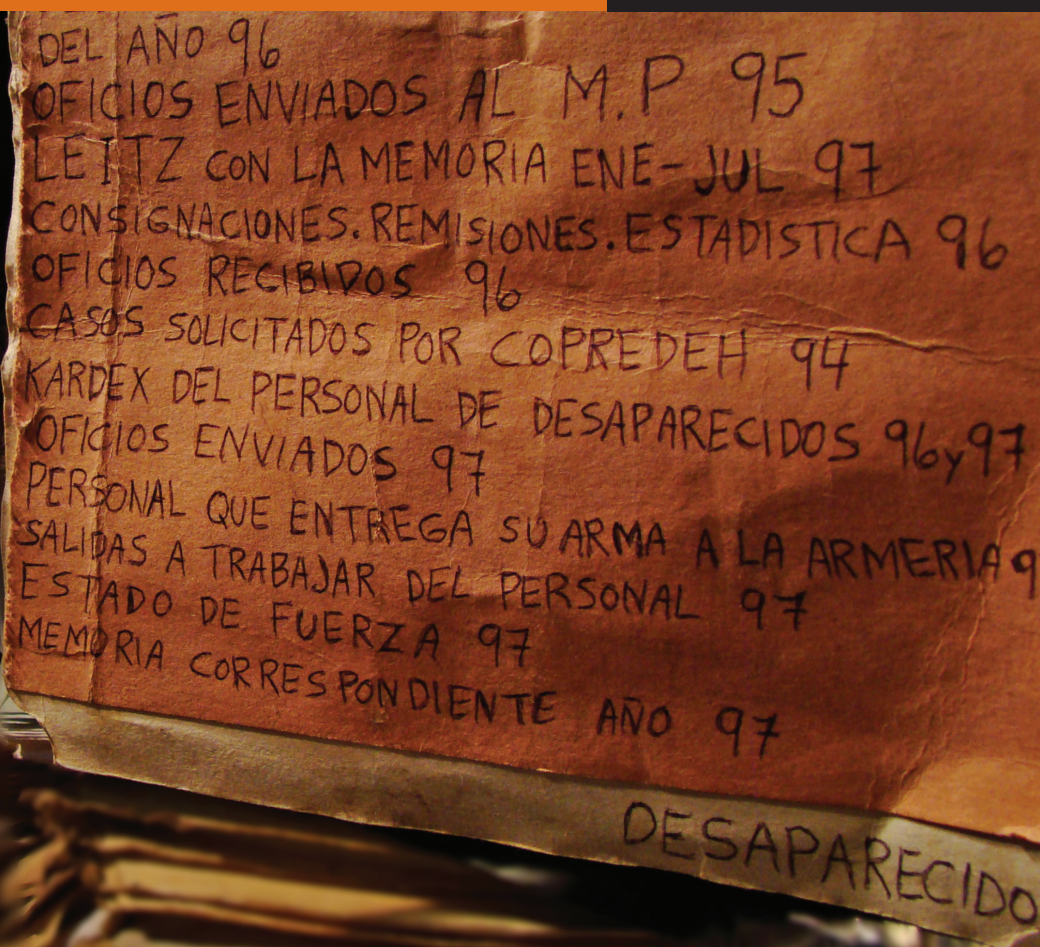 DEL AÑO 96
OFICIOS ENVIADOS AL M.P 95
LEITZ CON LA MEMORIA ENE-JUL 97
CONSIGNACIONES.REMISIONES.ESTADISTICA 96
OFICIOS RECIBIDOS 96
CASOS SOLICITADOS POR COPREDEH 94
KARDEX DEL PERSONAL DE DESAPARECIDOS 96y97
OFICIOS ENVIADOS 97
PERSONAL QUE ENTREGA SU ARMA A LA ARMERIA 9
SALIDAS A TRABAJAR DEL PERSONAL 97
ESTADO DE FUERZA 97
MEMORIA CORRESPONDIENTE AÑO 97
DESAPARECIDO